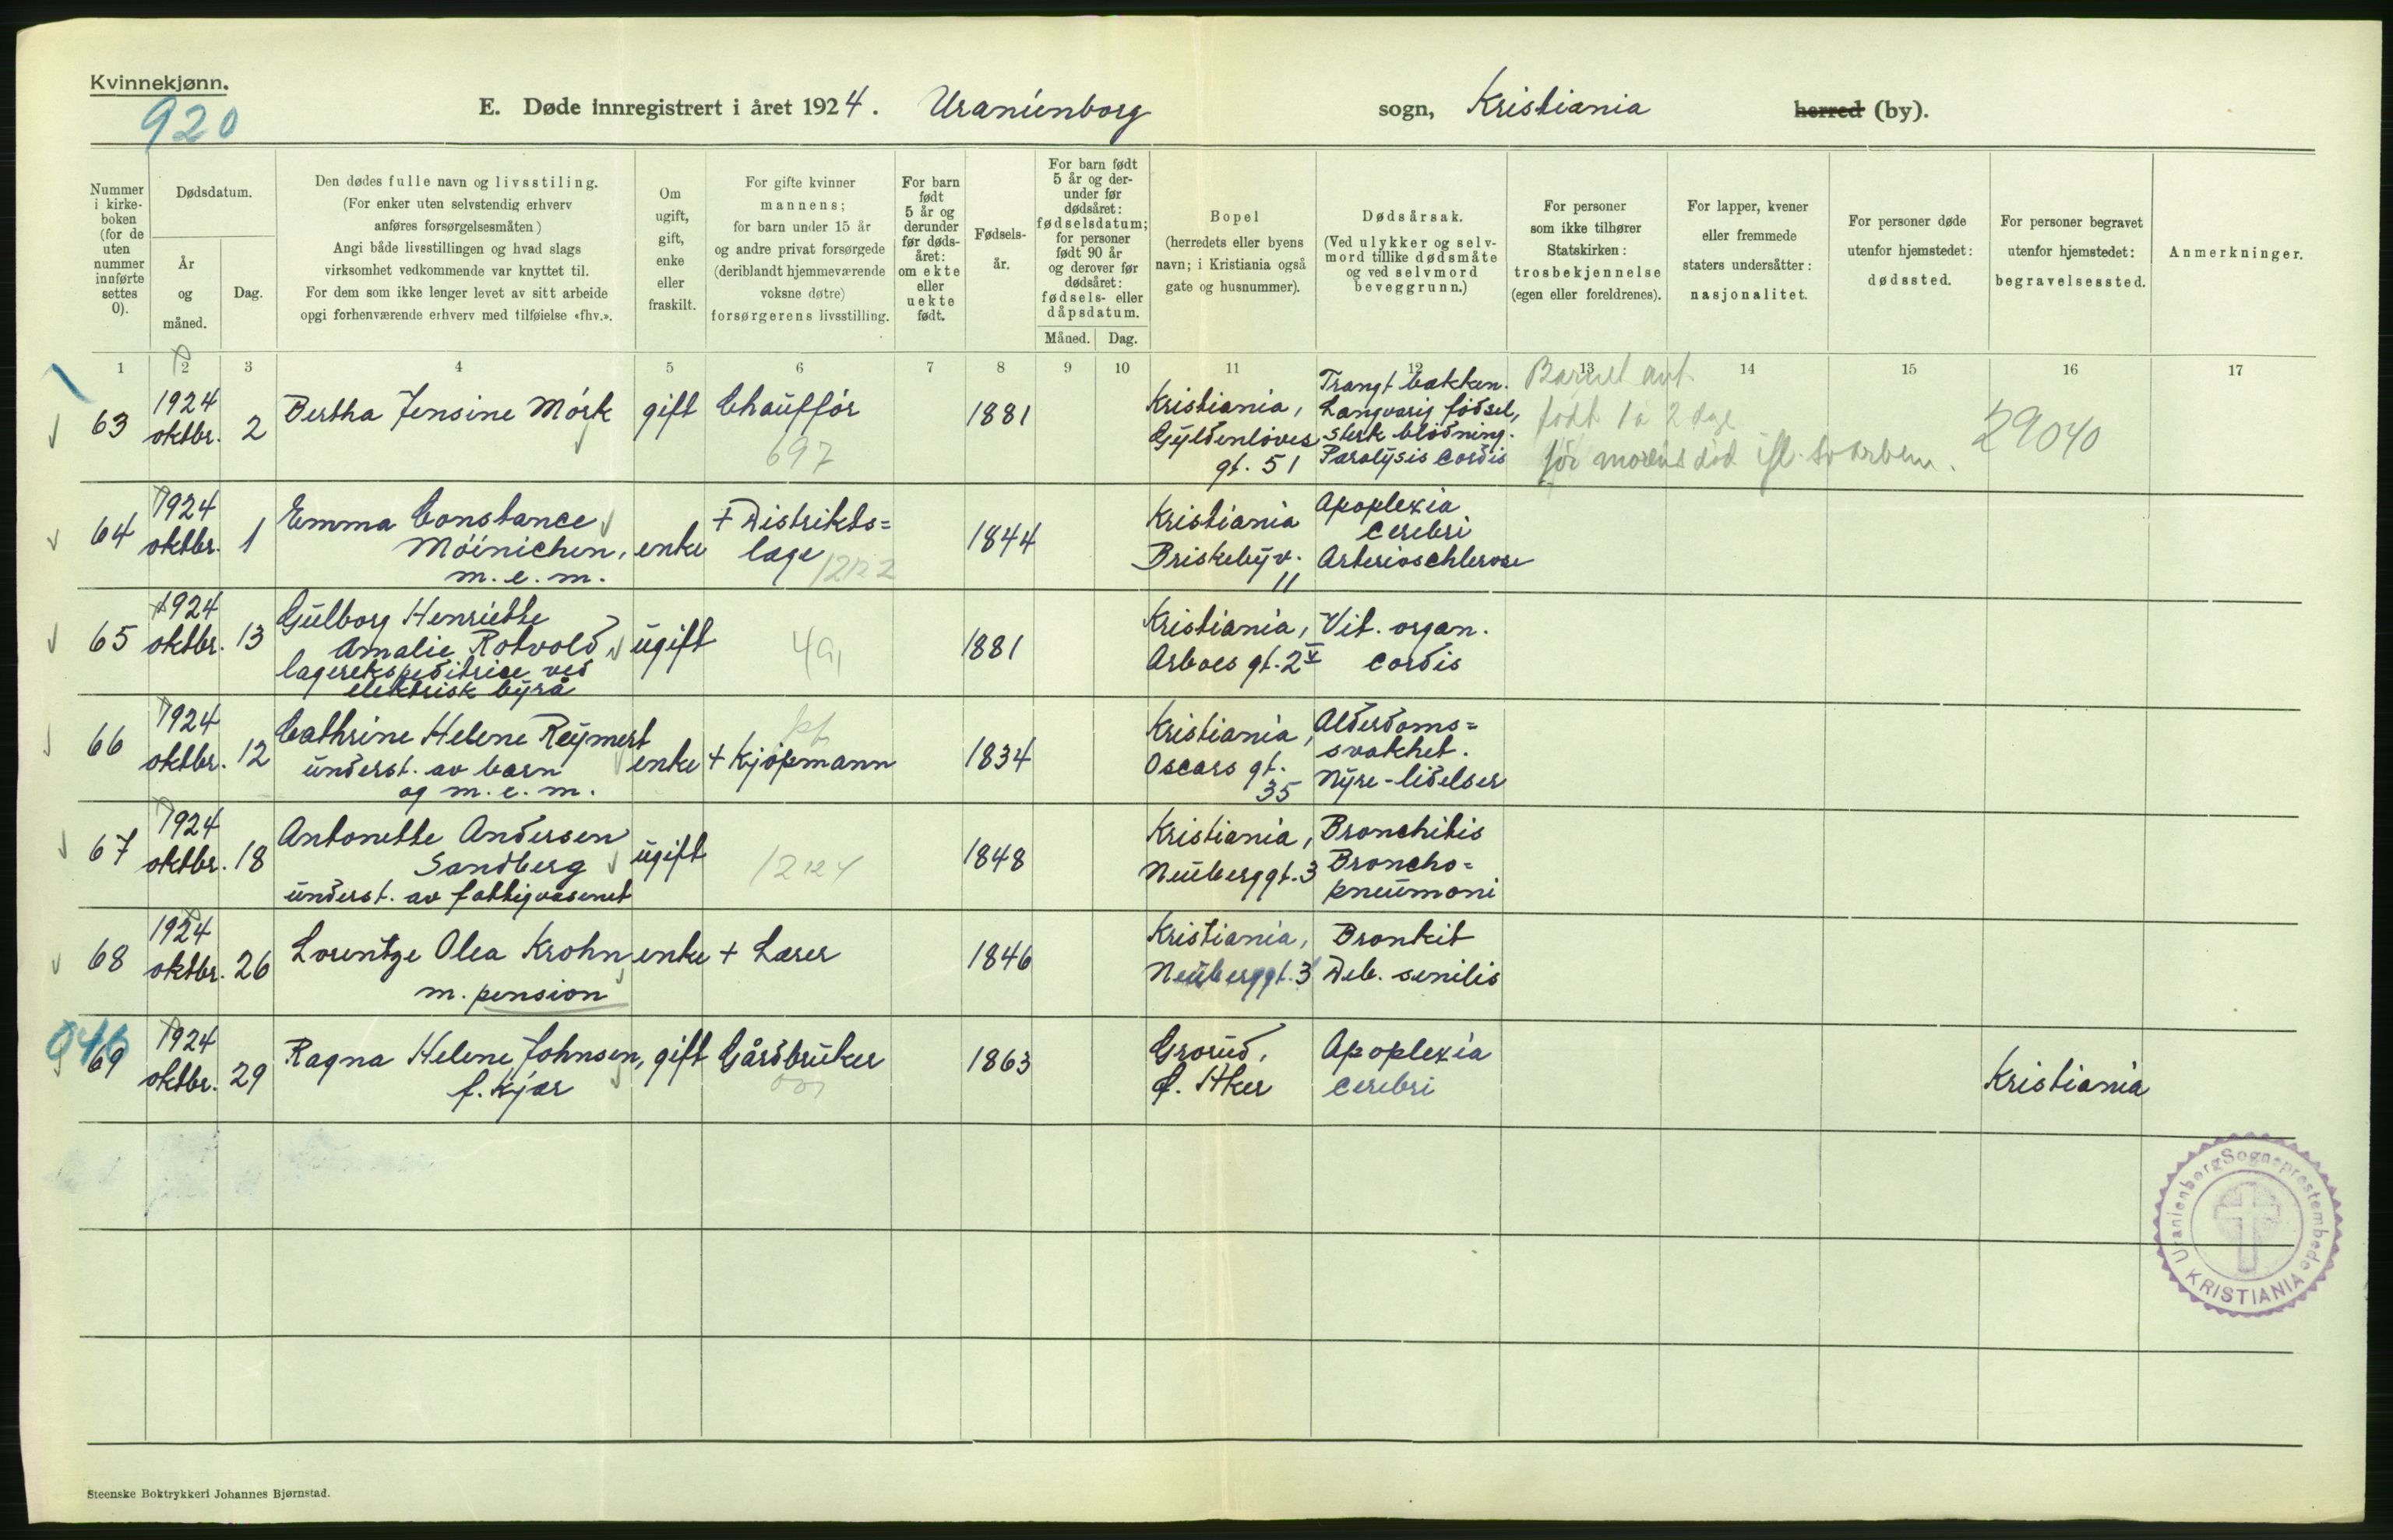 Kvinnekjønn.
920
E. Døde innregistrert i året 1924. Uranienborg sogn, Kristiania herred (by).
Nummer i kirke-boken (for de uten nummer innførte settes 0).
Dødsdatum.
År og måned.
Dag.
Den dødes fulle navn og livsstiling.
(For enker uten selvstendig erhverv
anføres forsørgelsesmåten)
Angi både livsstillingen og hvad slags
virksomhet vedkommende var knyttet til.
For dem som ikke lenger levet av sitt arbeide
opgi forhenværende erhverv med tilføielse «fhv.».
Om ugift, gift, enke eller fraskilt.
For gifte kvinner
mannens;
for barn under 15 år
og andre privat forsørgede
(deriblandt hjemmeværende
voksne døtre)
forsørgerens livsstilling.
For barn født 5 år og derunder før døds-året: om ekte eller uekte født.
Fødsels-år.
For barn født
5 år og der-
under før
dødsåret:
fødselsdatum;
for personer
født 90 år
og derover før
dødsåret:
fødsels- eller
dåpsdatum.
Måned. Dag.
Bopel
(herredets eller byens
navn; i Kristiania også
gate og husnummer).
Dødsårsak.
(Ved ulykker og selv-
mord tillike dødsmåte
og ved selvmord
beveggrunn.)
For personer
som ikke tilhører
Statskirken:
trosbekjennelse
(egen eller foreldrenes).
For lapper, kvener
eller fremmede
staters undersåtter:
nasjonalitet.
For personer døde
utenfor hjemstedet:
dødssted.
For personer begravet
utenfor hjemstedet:
begravelsessted.
Anmerkninger.
1 2 3 4 5 6 7 8 9 10 11 12 13 14 15 16 17
63 1924 oktbr. 2 Bertha Jensine Mörk gift Chaufför 1881 Kristiania, Gyldenlöves gt. 51
697
Trangt bækken.
Langvarig födsel,
sterk blödning.
Paralysis cordis
Barnet
født 1 à 2 dage
før morens død
29040
64 1924 oktbr. 1 Emma Constance
Möinichen, enke + Distrikts=
læge 1844
m. e. m.
Kristiania
Briskebyv.
11
Apoplexia
cerebri
Arterioschlerose
65 1924 oktbr. 13 Gulborg Henriette
Amalie Rotvold, ugift 1881
lagerekspeditrice ved
elektrisk byrå
Kristiania,
Arboes gt. 2 V
Vit. organ.
cordis
66 1924 oktbr. 12 Cathrine Helene Reymert
underst. av barn enke + Kjöpmann 1834
og m. e. m.
Kristiania,
Oscars gt.
35
Alderdoms=
svakhet.
Nyre-lidelser
67 1924 oktbr. 18 Antonette Andersen
Sandberg ugift 1848
underst. av fattigvæsenet
Kristiania,
Neuberggt. 3
Bronchitis
Broncho=
pneumoni
68 1924 oktbr. 26 Lorentze Olea Krohn, enke + Lærer 1846
m. pension
Kristiania,
Neuberggt. 3
Bronkit
Deb. senilis
69 1924 oktbr. 29 Ragna Helene Johnsen, gift Gårdbruker 1863
f. Kjær
Grorud,
Aker
Apoplexia
cerebri
Kristiania
Uranienborg Sogneprestembede
KRISTIANIA
Steenske Boktrykkeri Johannes Bjørnstad.